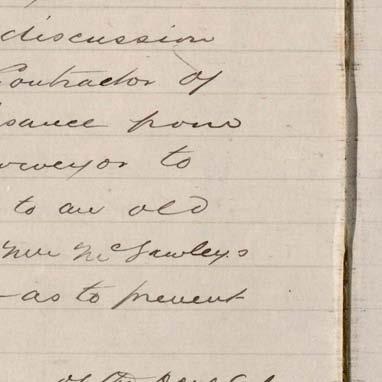 discussion
Contractor of
sance from
rveyor to
to an old
McGawleys
as to prevent
of the